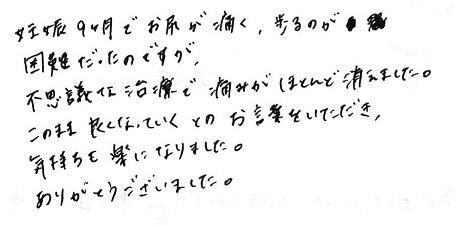 妊娠9ヶ月でお尻が痛く、歩るのが
困難だったのですが、
不思議な治療で痛みがほとんど消えました。
このまま良くなっていくとのお言葉をいただき、
気持ちも楽になりました。
ありがとうございました。